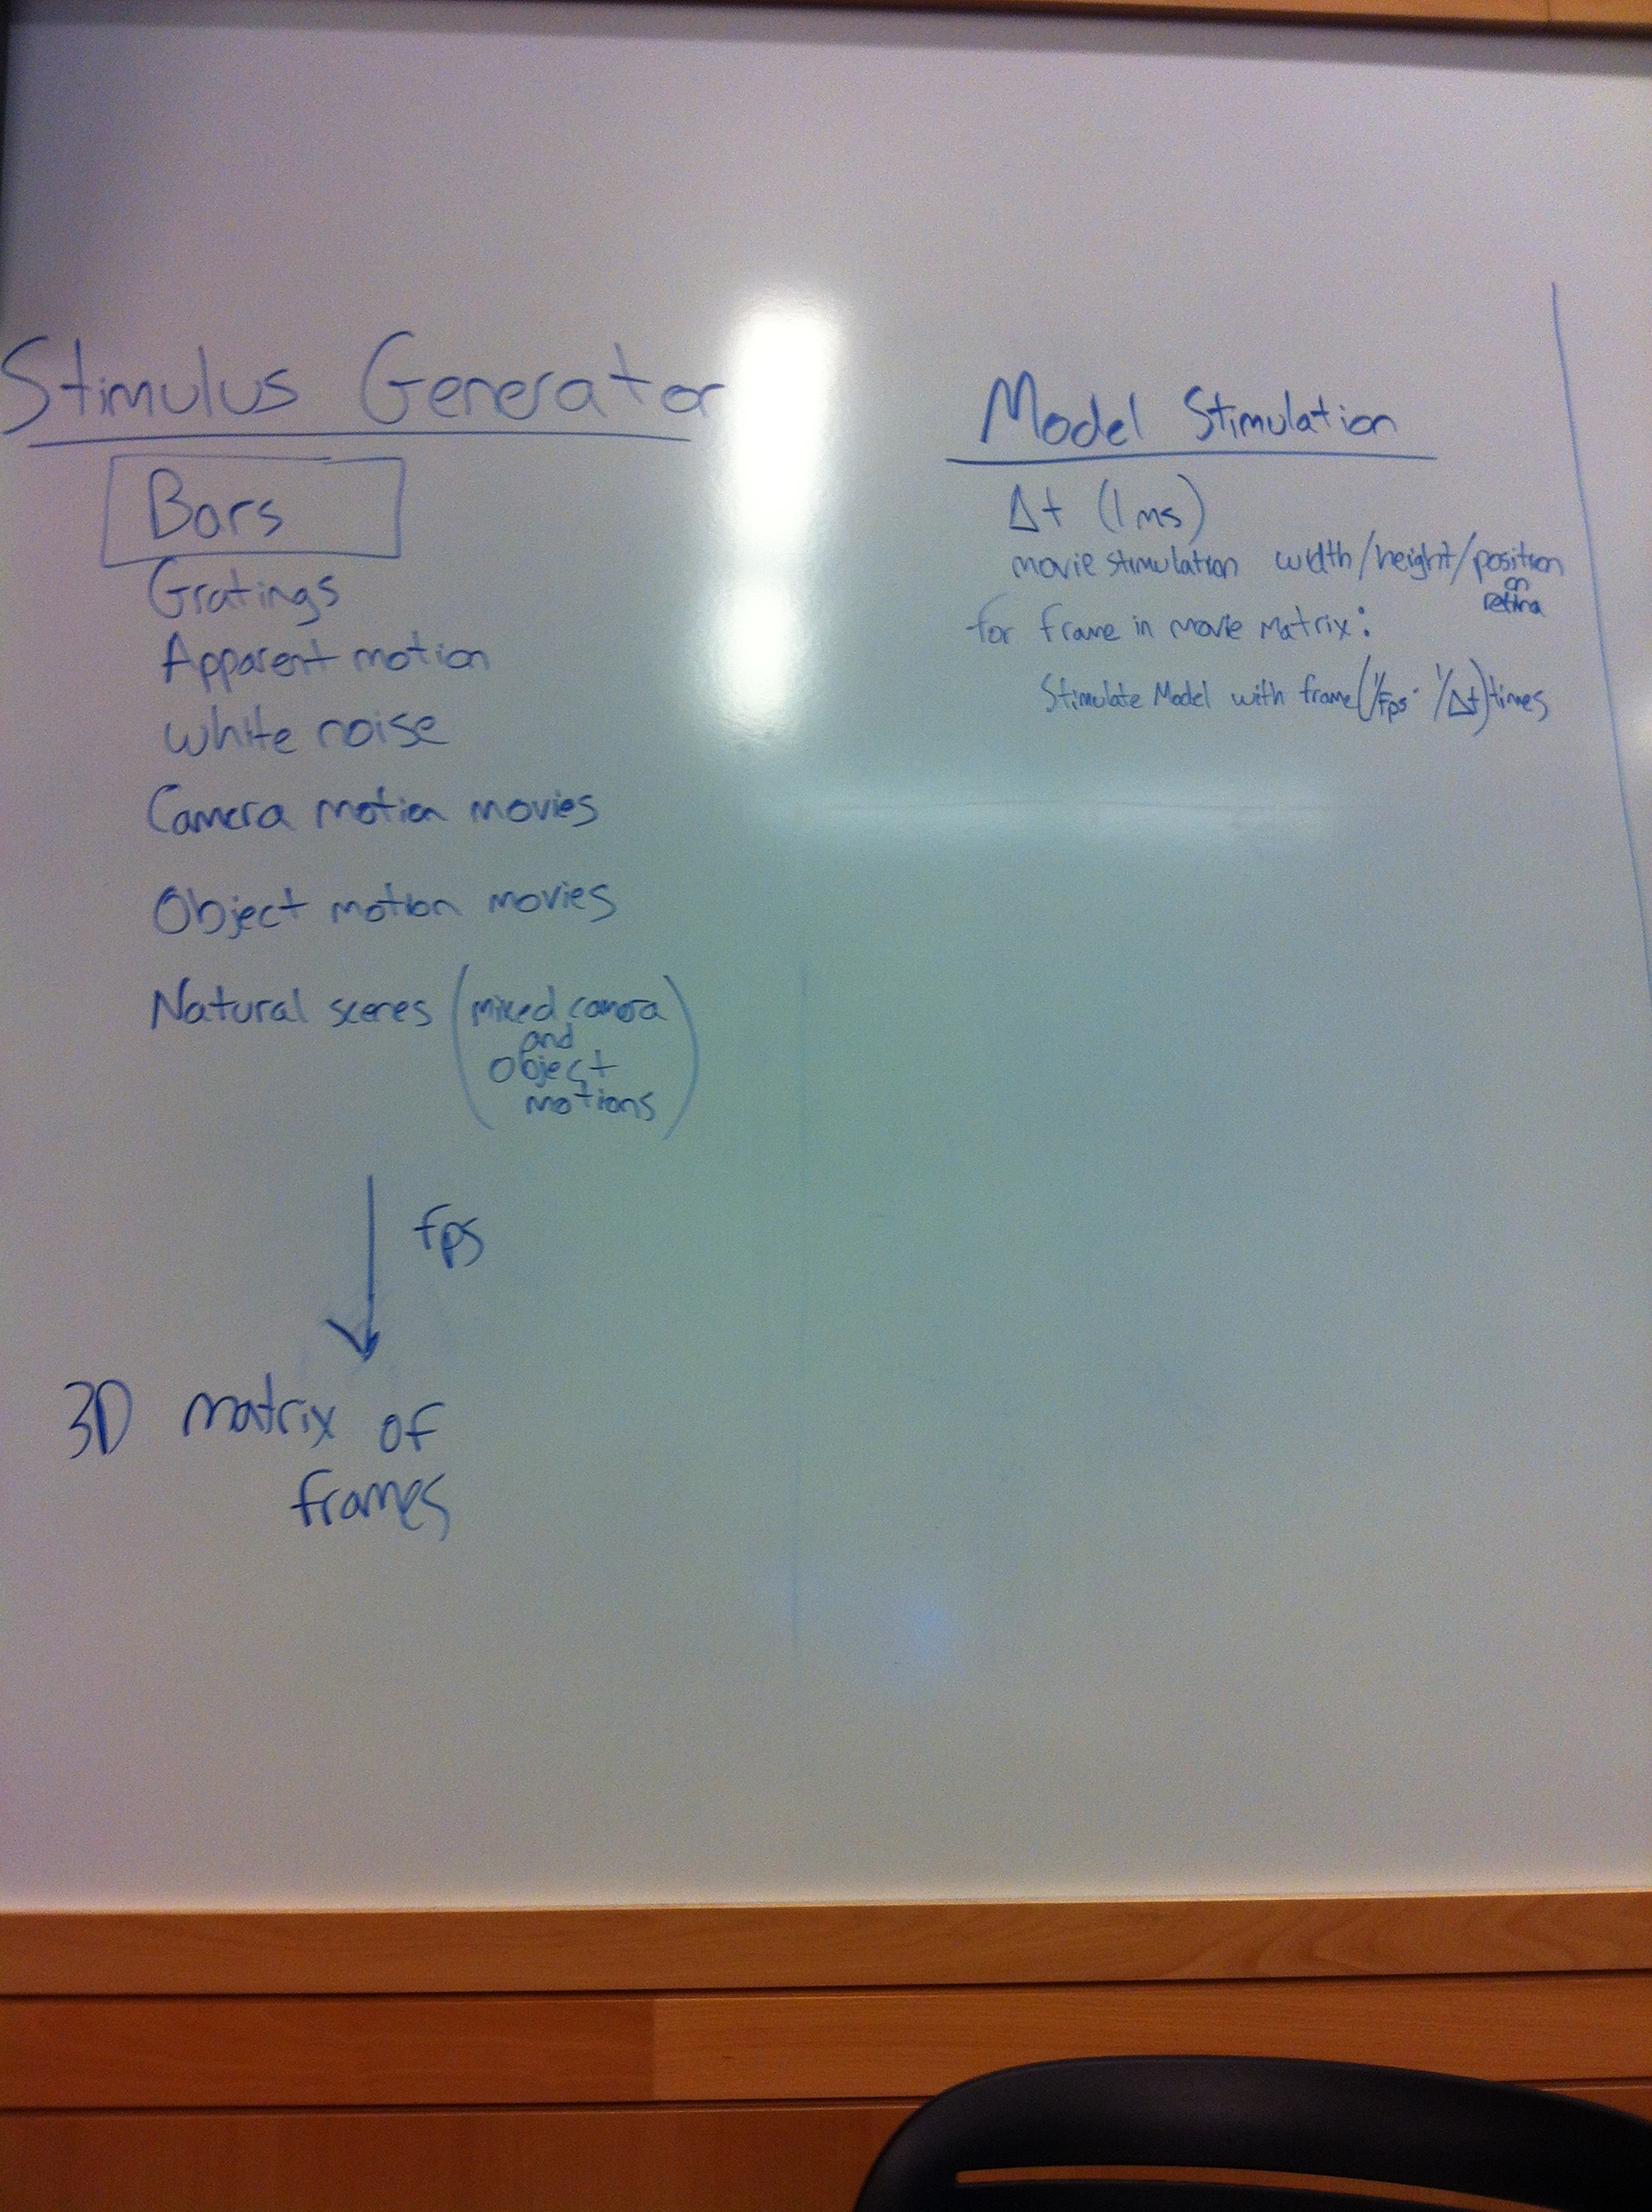 Stimulus Generator
Bars
Gratings
Apparent motion
White noise
Camera motion movies
Object motion movies
Natural scenes (mixed camera
and
object
motions)
fps
3D matrix of
frames
Model Stimulation
Δt (1ms)
movie stimulation width/height/position
on
retina
for frame in movie matrix:
Stimulate Model with frame (1/fps · 1/Δt) times